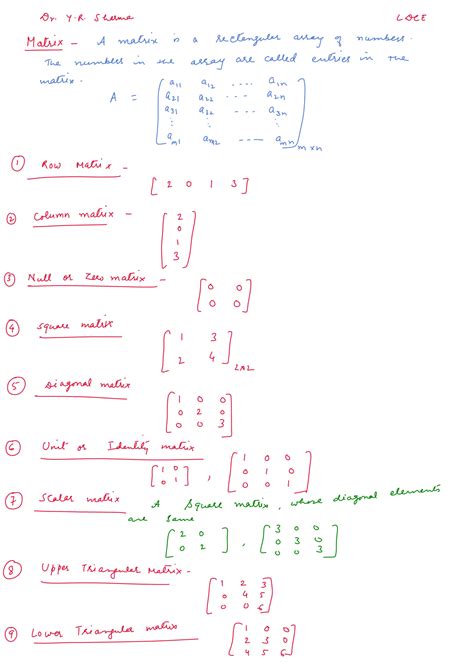 Dr. Y.R. Sharma LDCE
Matrix - A matrix is a rectangular array of numbers.
The numbers in the array are called entries in the
matrix.
A = [ a11 a12 .... a1n
a21 a22 ... a2n
a31 a32 .... a3n
⋮ ⋮ ⋮
am1 am2 ---- amn ] m×n
① Row Matrix -
[ 2 0 1 3 ]
② Column matrix -
[ 2
0
1
3 ]
③ Null or Zero matrix -
[ 0 0
0 0 ]
④ Square matrix
[ 1 3
2 4 ] 2×2
⑤ Diagonal matrix
[ 1 0 0
0 2 0
0 0 3 ]
⑥ Unit or Identity matrix
[ 1 0
0 1 ] , [ 1 0 0
0 1 0
0 0 1 ]
⑦ Scalar matrix A Square matrix, whose diagonal elements
are same
[ 2 0
0 2 ] , [ 3 0 0
0 3 0
0 0 3 ]
⑧ Upper Triangular Matrix -
[ 1 2 3
0 4 5
0 0 6 ]
⑨ Lower Triangular matrix
[ 1 0 0
2 3 0
4 5 6 ]